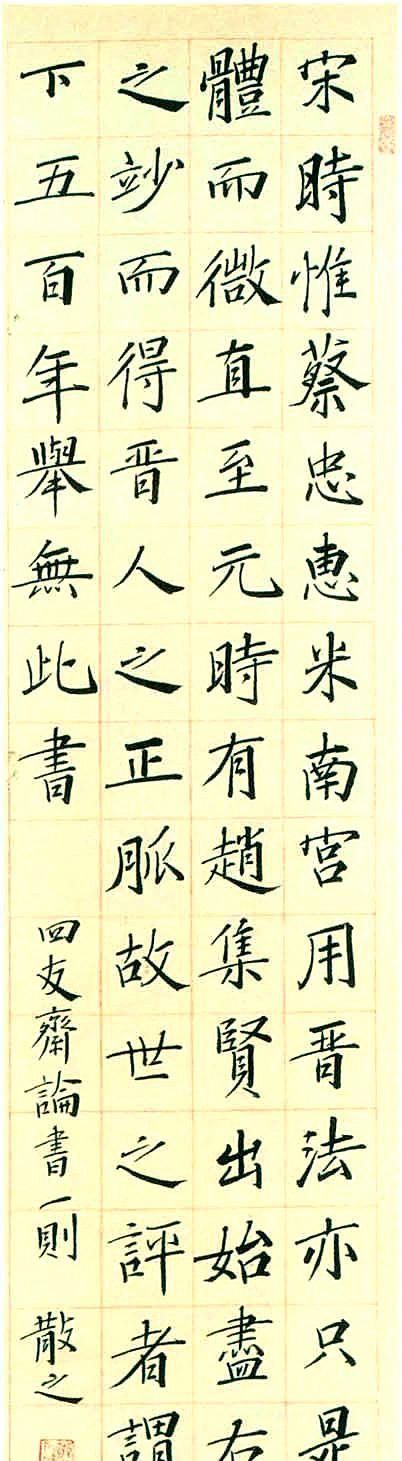 宋時惟蔡忠惠米南宮用晋法亦只是
體而微直至元時有趙集賢出始盡右
之竗而得晋人之正脈故世之評者謂
下五百年舉無此書
四友齋論書一則 散之